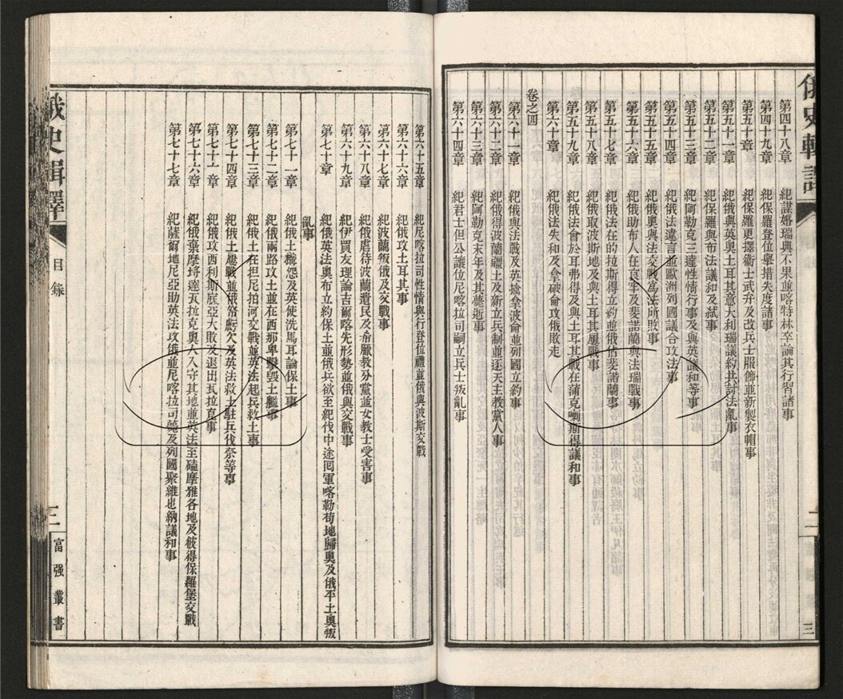 俄史輯譯
第四十八章 紀謀婚瑞典不果並喀特林卒論其行習諸事
第四十九章 紀保羅登位舉措失度諸事
第五十章 紀保羅更擇衞士武弁及改兵士服飾並新製衣帽事
第五十一章 紀俄與英奧土耳其意大利瑞議約共討法亂事
第五十二章 紀保羅與布法議和及弒事
第五十三章 紀阿勒克三達性情行事及與英議和等事
第五十四章 紀俄法違言並歐洲列國議合攻法事
第五十五章 紀俄奧與法交戰爲法所敗事
第五十六章 紀俄助布人在
第五十七章 紀俄法在的拉斯得立約並俄佔斐諾蘭事
第五十八章 紀俄取波斯地及與土耳其屢戰事
第五十九章 紀俄法會於耳弗得及與土耳其戰在蒲克喇斯得議和事
第六十章 紀俄法失和及拿破侖攻俄敗走
卷之四
第六十一章 紀俄與法戰及英擒拿波侖並列國立約事
第六十二章 紀俄得波蘭疆土及新立兵制並逐天主教黨人事
第六十三章 紀阿勒克末年及其薨逝事
第六十四章 紀君士但公讓位尼喀拉司嗣立兵士叛亂事
三
第六十五章 紀尼喀拉司性情與行登位禮並俄與波斯交戰
第六十六章 紀俄攻土耳其事
第六十七章 紀波蘭叛俄及交戰事
第六十八章 紀俄虐待波蘭遺民及希臘教分黨並女教士受害事
第六十九章 紀伊買友理論吉爾喀先形勢並俄與交戰事
第七十章 紀俄英法奧布立約保土並俄兵欲至紀伐中途囘軍喀勒荀地歸奧及俄平土奧叛
亂事
第七十一章 紀俄土糉怨及英使洗馬耳論保土事
第七十二章 紀俄兩路攻土並在西那卑擊毀土艦事
第七十三章 紀俄土在担尼拍河交戰並英法起兵救土事
第七十四章 紀俄土屢戰並俄帑虧欠及英法救土駐兵伐奈等事
第七十五章 紀俄攻西利斯底亞大敗及退出瓦拉克事
第七十六章 紀俄棄摩埒達瓦拉克奧人入守其地並英法至磕摩雅各地及彼得保羅堡交戰
第七十七章 紀薩爾地尼亞助英法攻俄並尼喀拉司薨及列國聚維也納議和事
俄史輯譯
目錄
三
富強叢書